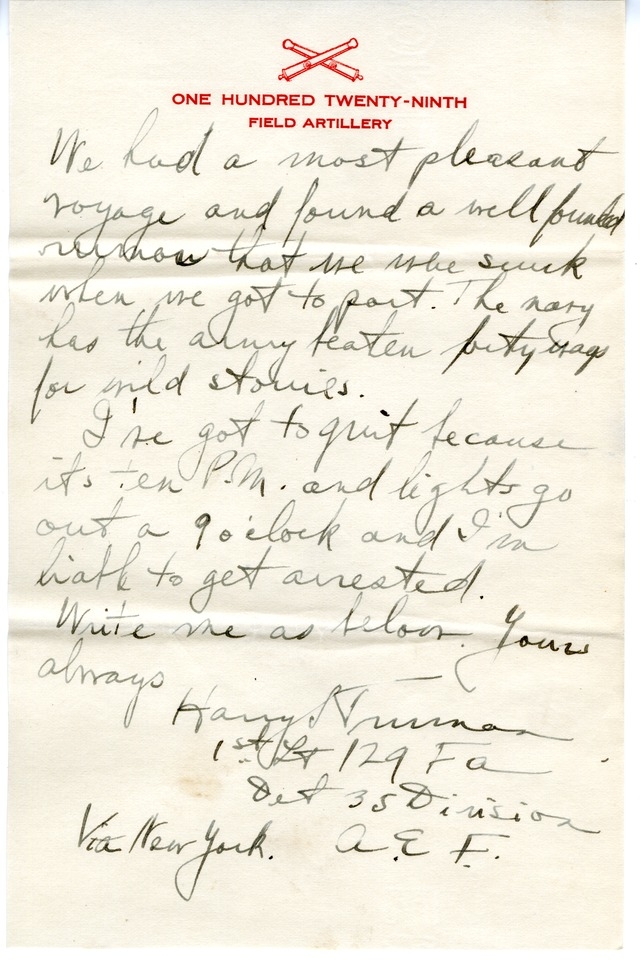 ONE HUNDRED TWENTY-NINTH
FIELD ARTILLERY
We had a most pleasant
voyage and found a well founded
rumor that we were sunk
when we got to port. The navy
has the army beaten forty ways
for wild stories.
I've got to quit because
its ten P.M. and lights go
out a 9 o'clock and I'm
liable to get arrested.
Write me as below. Yours
always
Harry S Truman
1st Lt 129 F a
Det 35 Division
Via New York. A. E F.